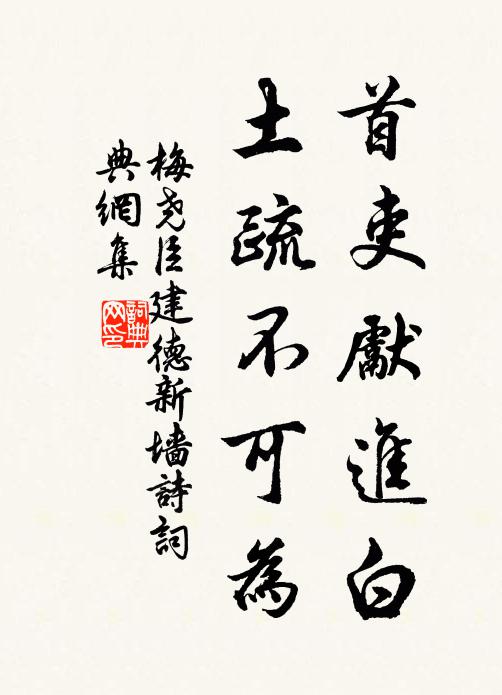 首吏獻進白
土疏不可為
梅堯臣建德新墻詩詞
典網集
詞典
网印